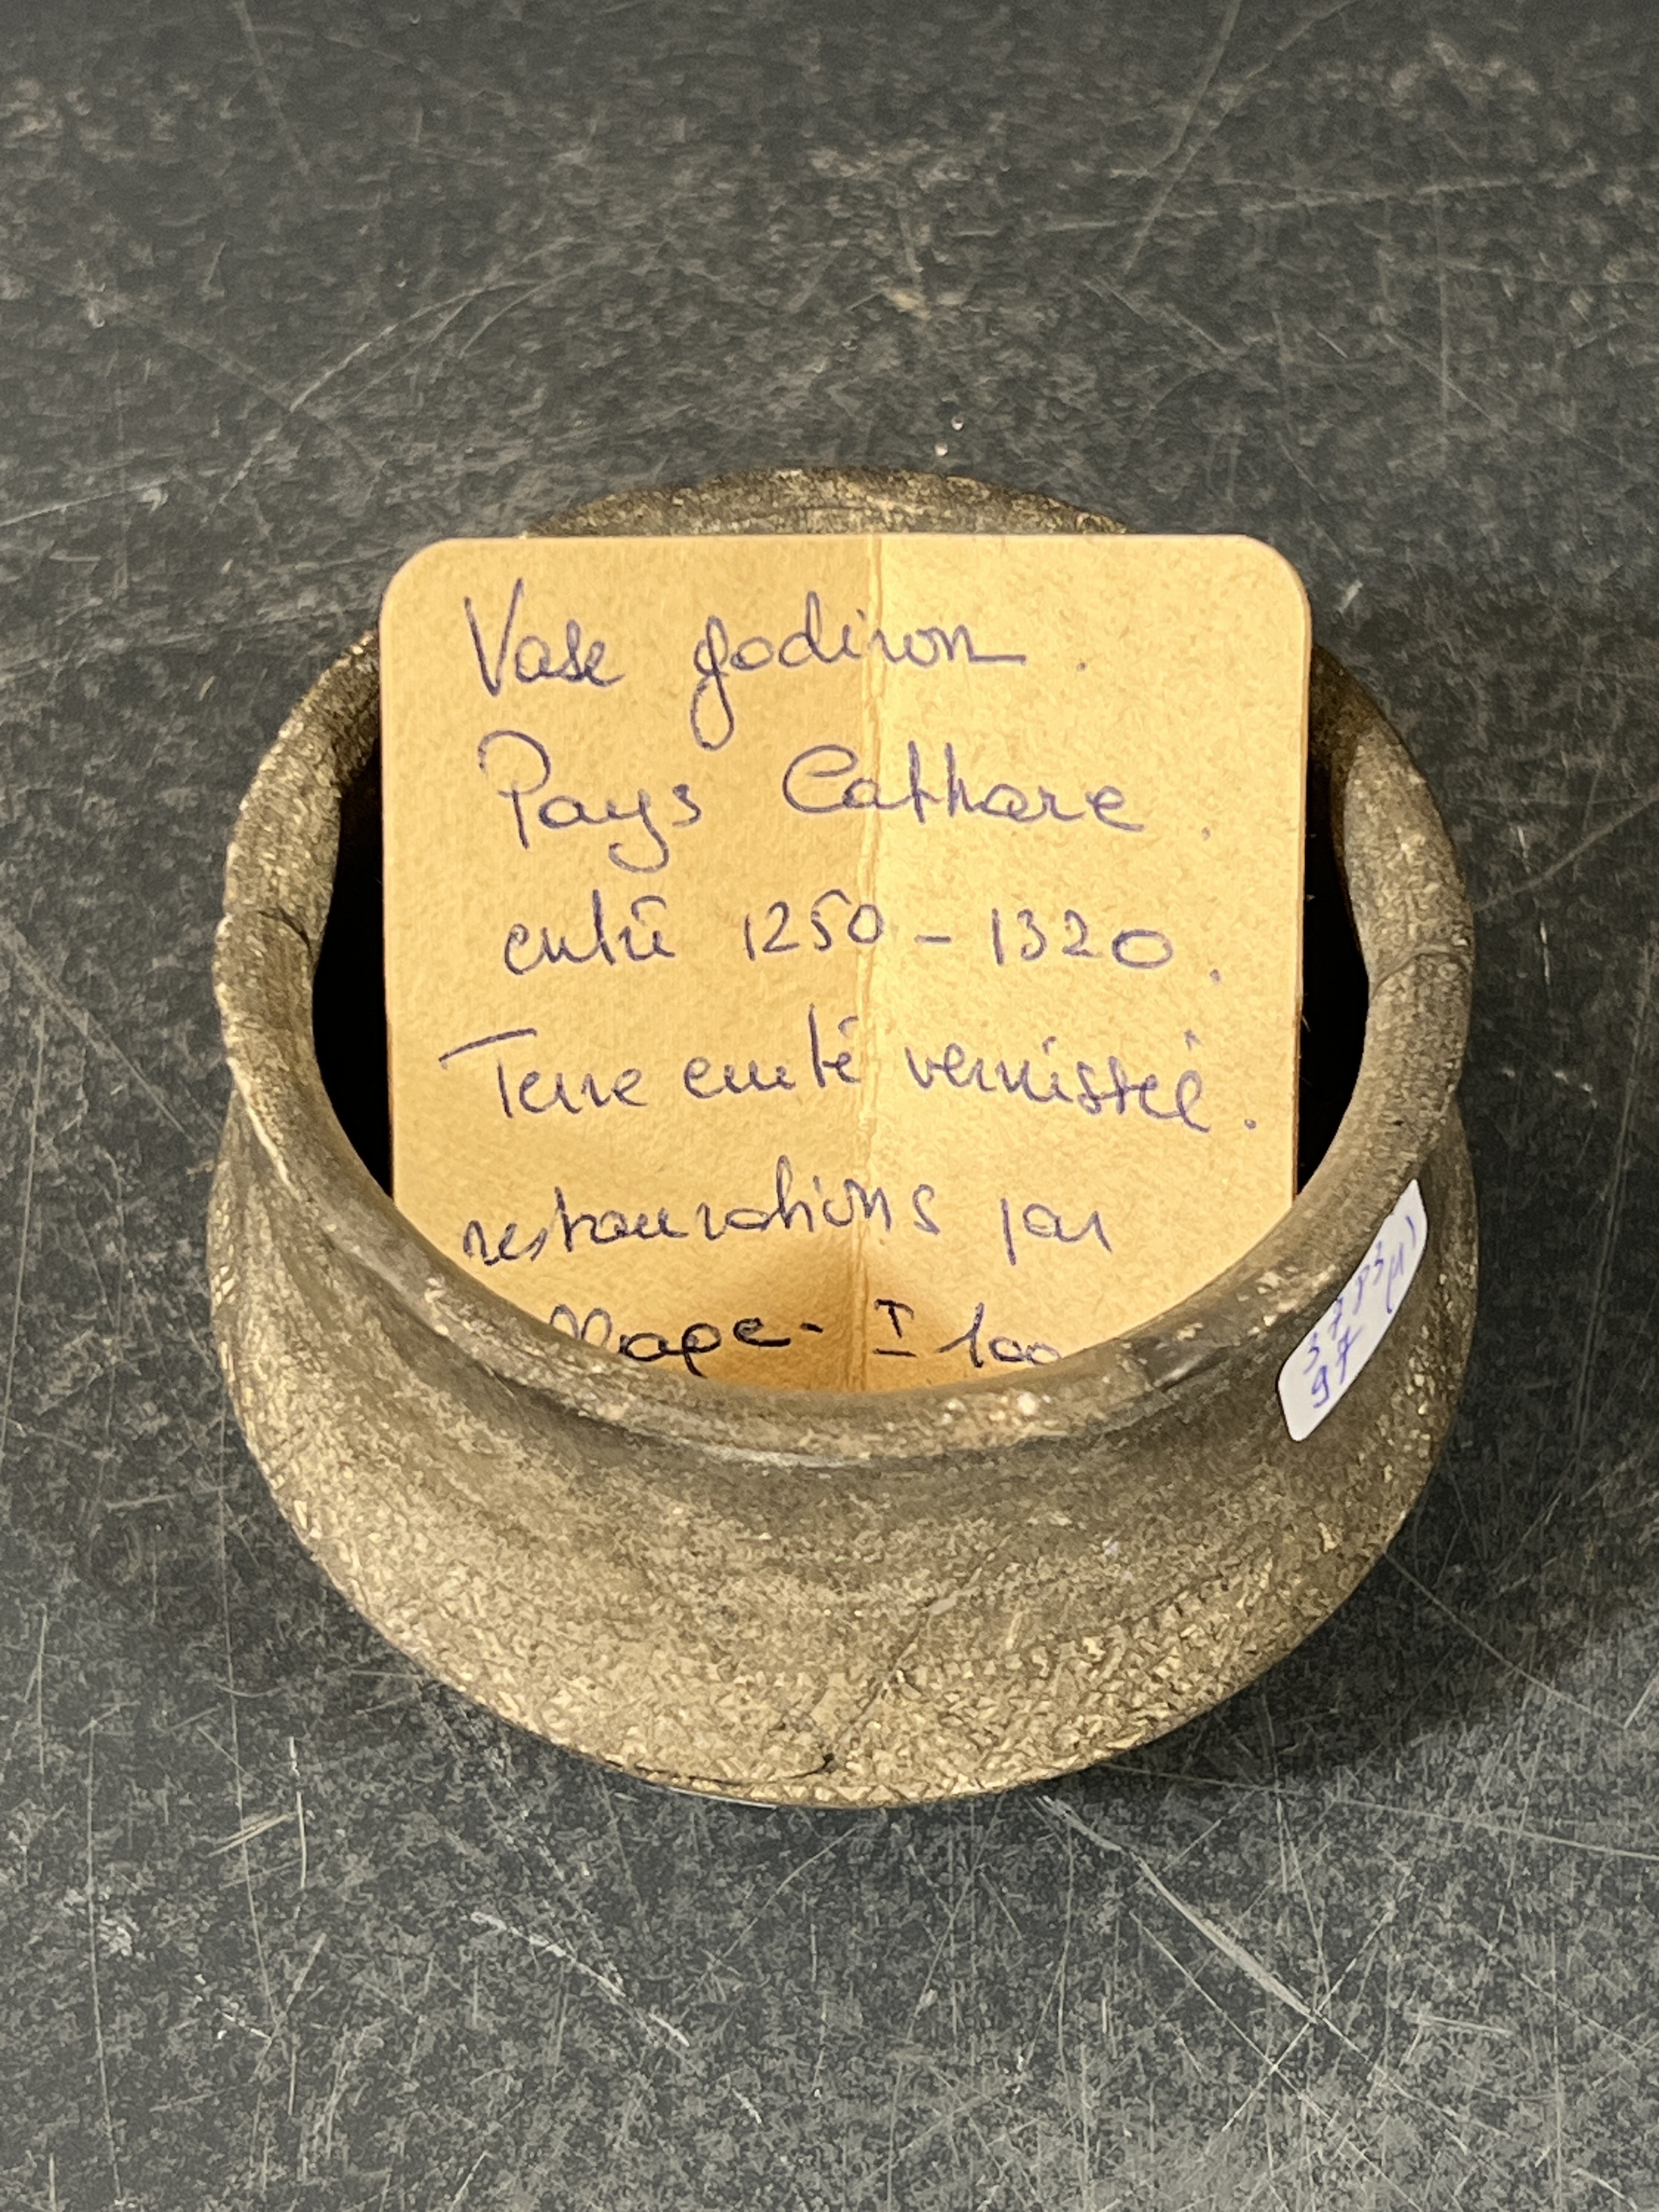 Vase godiron.
Pays Cathare.
entre 1250 - 1320.
Terre cuite vernissée.
restaurations par
llage - I 100